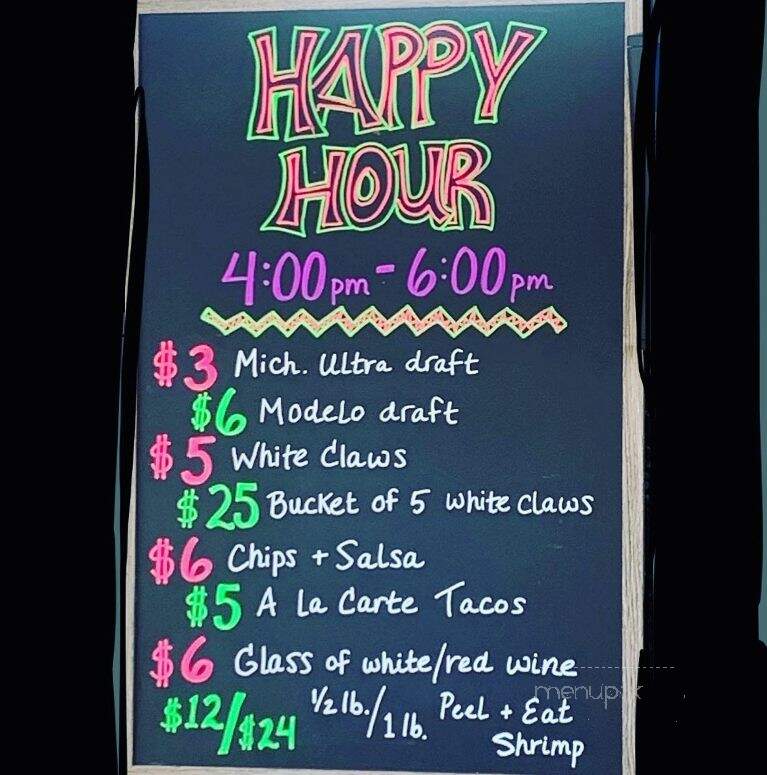 HAPPY
HOUR
4:00pm - 6:00pm
$3 Mich. Ultra draft
$6 Modelo draft
$5 White Claws
$25 Bucket of 5 white claws
$6 Chips + Salsa
$5 A La Carte Tacos
$6 Glass of white/red wine
$12/$24 1/2 lb./1 lb. Peel + Eat
Shrimp